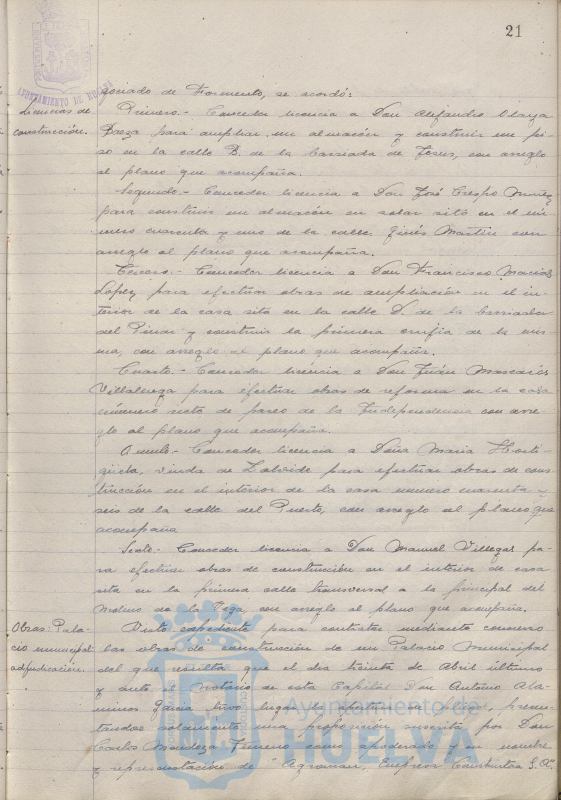 21
AYUNTAMIENTO DE HUELVA
Licencias de
construcción.
gociado de Fomento, se acordó:
Primero.- Conceder licencia a Don Alejandro Olaya
Baeza para ampliar un almacén y construir un pi-
so en la calle B. de la barriada de Jesus, con arreglo
al plano que acompaña.
Segundo.- Conceder licencia a Don José Crespo
para construir un almacén en solar sito en el nú-
mero cuarenta y uno de la calle Ginés Martín con
arreglo al plano que acompaña.
Tercero.- Conceder licencia a Don Francisco Macias
Lopez para efectuar obras de ampliación en el in-
terior de la casa sita en la calle D. de la barriada
del Pinar y construir la primera crujía de la mis-
ma, con arreglo al plano que acompaña.
Cuarto.- Conceder licencia a Don Juán Mascarós
Villalonga para efectuar obras de reforma en la casa
número siete de paseo de la Independencia con arre-
glo al plano que acompaña.
Quinto.- Conceder licencia a Doña Maria Horti-
güela, viuda de para efectuar obras de cons-
trucción en el interior de la casa numero cuarenta y
seis de la calle del Puerto, con arreglo al plano que
acompaña
Sexto.- Conceder licencia a Don Manuel Villegas pa-
ra efectuar obras de construcción en el interior de casa
sita en la primera calle transversal a la principal del
Molino de la Vega, con arreglo al plano que acompaña.
Obras: Pala-
cio municipal:
adjudicación.
Visto expediente para contratar mediante concurso
las obras de construcción de un Palacio Municipal
del que resulta que el dia treinta de Abril último
y ante el Notario de esta Capital Don Antonio Ala-
minos Garcia tuvo lugar la apertura de presen-
tandose solamente una proposición suscrita por Don
Carlos Mendoza como apoderado y en nombre
y representación de "Agroman, Empresa Constructora S.A."
Ayuntamiento de
HUELVA